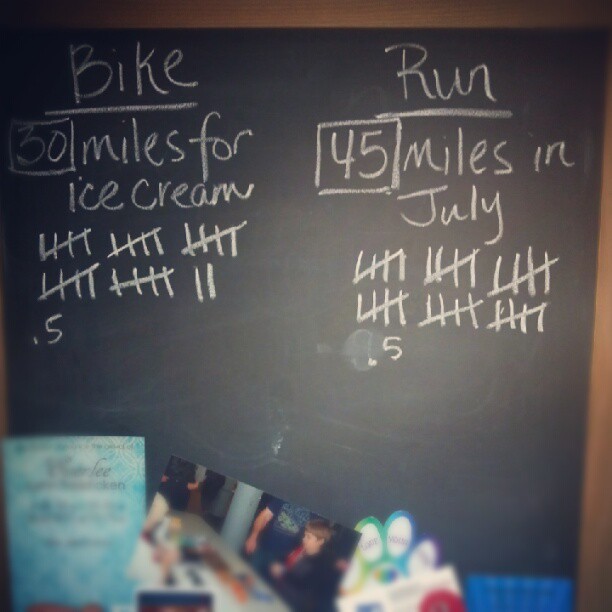 Bike
30 miles for
ice cream
.5
Run
45 miles in
July
.5